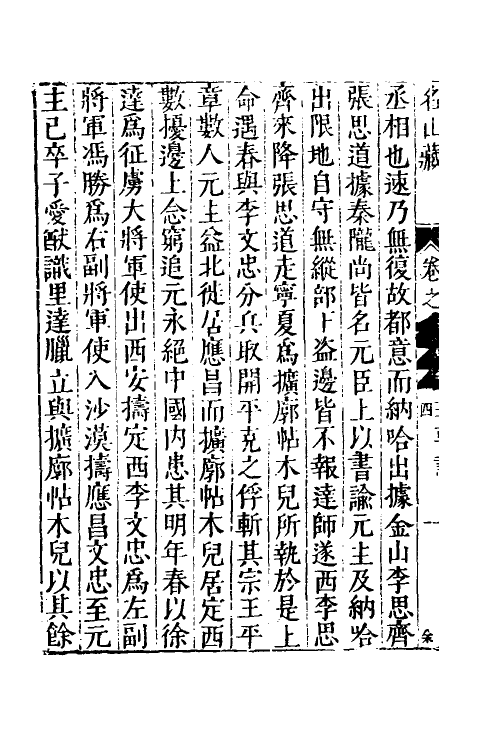 名山藏 卷之 四
丞相也速乃無復故都意而納哈出據金山李思齊
張思道據秦隴尚皆名元臣上以書諭元主及納哈
出限地自守無縱部下盜邊皆不報達師遂西李思
齊來降張思道走寧夏爲擴廓帖木兒所執於是上
命遇春與李文忠分兵取開平克之俘斬其宗王平
章數人元主益北徙居應昌而擴廓帖木兒居定西
數擾邊上念窮追元永絕中國內患其明年春以徐
達爲征虜大將軍使出西安擣定西李文忠爲左副
將軍馮勝爲右副將軍使入沙漠擣應昌文忠至元
主已卒子愛猷識里達臘立與擴廓帖木兒以其餘